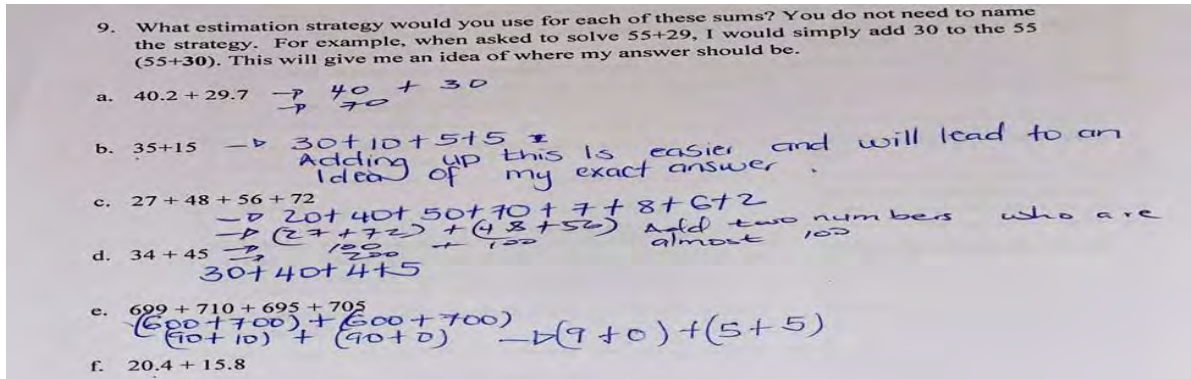 9. What estimation strategy would you use for each of these sums? You do not need to name
the strategy. For example, when asked to solve 55+29, I would simply add 30 to the 55
(55+30). This will give me an idea of where my answer should be.
a. 40.2 + 29.7 → 40 + 30
→ 70
b. 35+15 → 30+10+5+5
Adding up this is easier and will lead to an
Idea of my exact answer.
c. 27 + 48 + 56 + 72
→ 20+40+50+70+7+8+6+2
→ (27+72) + (48+56) Add two numbers who are
→ 100 + 100 almost 100
→ 200
d. 34 + 45
30+40+4+5
e. 699 + 710 + 695 + 705
(600+700)+(600+700)
(90+10) + (90+0) →(9+0)+(5+5)
f. 20.4 + 15.8